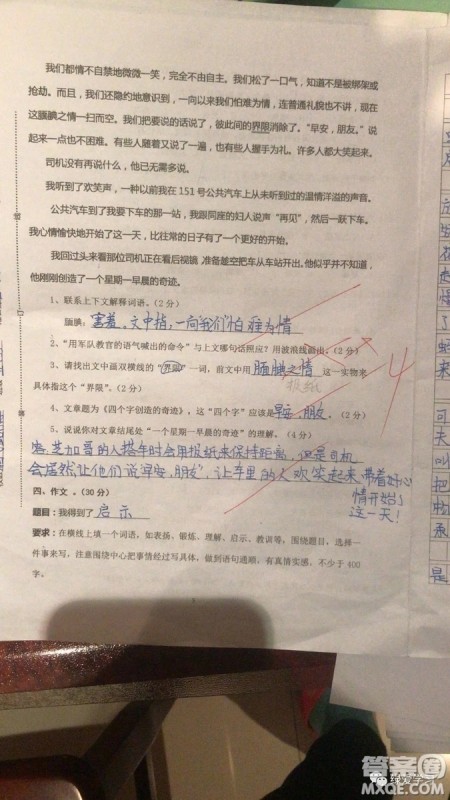 我们都情不自禁地微微一笑，完全不由自主。我们松了一口气，知道不是被绑架或
抢劫。而且，我们还隐约地意识到，一向以来我们怕难为情，连普通礼貌也不讲，现在
这腼腆之情一扫而空。我们把要说的话说了，彼此间的界限消除了。“早安，朋友。”说
起来一点也不困难。有些人随着又说了一遍，也有些人握手为礼。许多人都大笑起来。
司机没有再说什么，他已无需多说。
我听到了欢笑声，一种以前我在 151 号公共汽车上从未听到过的温情洋溢的声音。
公共汽车到了我要下车的那一站，我跟同座的妇人说声“再见”，然后一跃下车。
我心情愉快地开始了这一天，比往常的日子有了一个更好的开始。
我回过头来看那位司机正在看后视镜 准备趁空把车从车站开出。他似乎并不知道，
他刚刚创造了一个星期一早晨的奇迹。
1、联系上下文解释词语。（2 分）
腼腆：害羞。文中指，一向我们怕难为情
2、“用军队教官的语气喊出的命令”与上文哪句话照应？用波浪线画出。（2 分）
3、请找出文中画双横线的“界限”一词，前文中用腼腆之情这一实物来
报纸
具体指这个“界限”。（2 分）
4、文章题为《四个字创造的奇迹》，这“四个字”应该是早安，朋友。（2 分）
5、说说你对文章结尾处“一个星期一早晨的奇迹”的理解。（4 分）
芝加哥的人搭车时会用报纸来保持距离，但是司机
会居然让他们说“早安，朋友”，让车里的人欢笑起来，带着好心
情开始了
这一天！
四、作文。（30 分）
题目：我得到了启示
要求：在横线上填一个词语，如表扬、锻炼、理解、启示、教训等。围绕题目，选择一
件事来写，注意围绕中心把事情经过写具体，做到语句通顺，有真情实感，不少于 400
字。
4
可
天
叫
把
是
答案圈
MXQE.COM